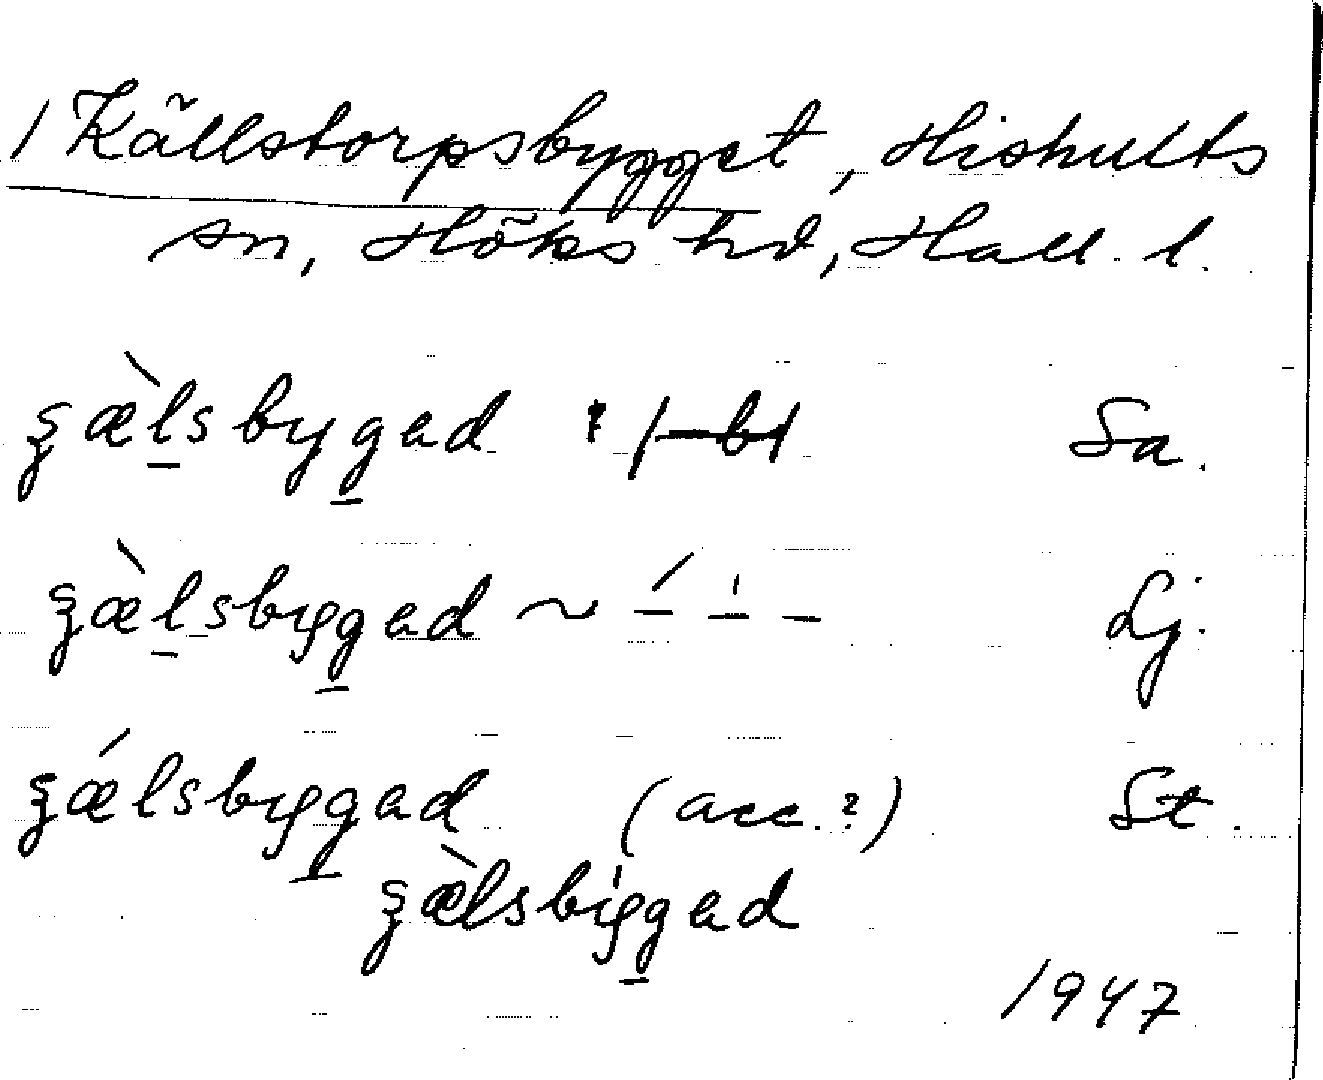 1 Källstorpsbygget, Hishults
sn, Höks hd, Hall. l.
ʂæ̀lsbygad Sa.
ʂæ̀lsbygad ~ – ́ – ̍ – Lj.
ʂǽlsbygad (acc.?) St.
ʂæ̀lsbygad
1947